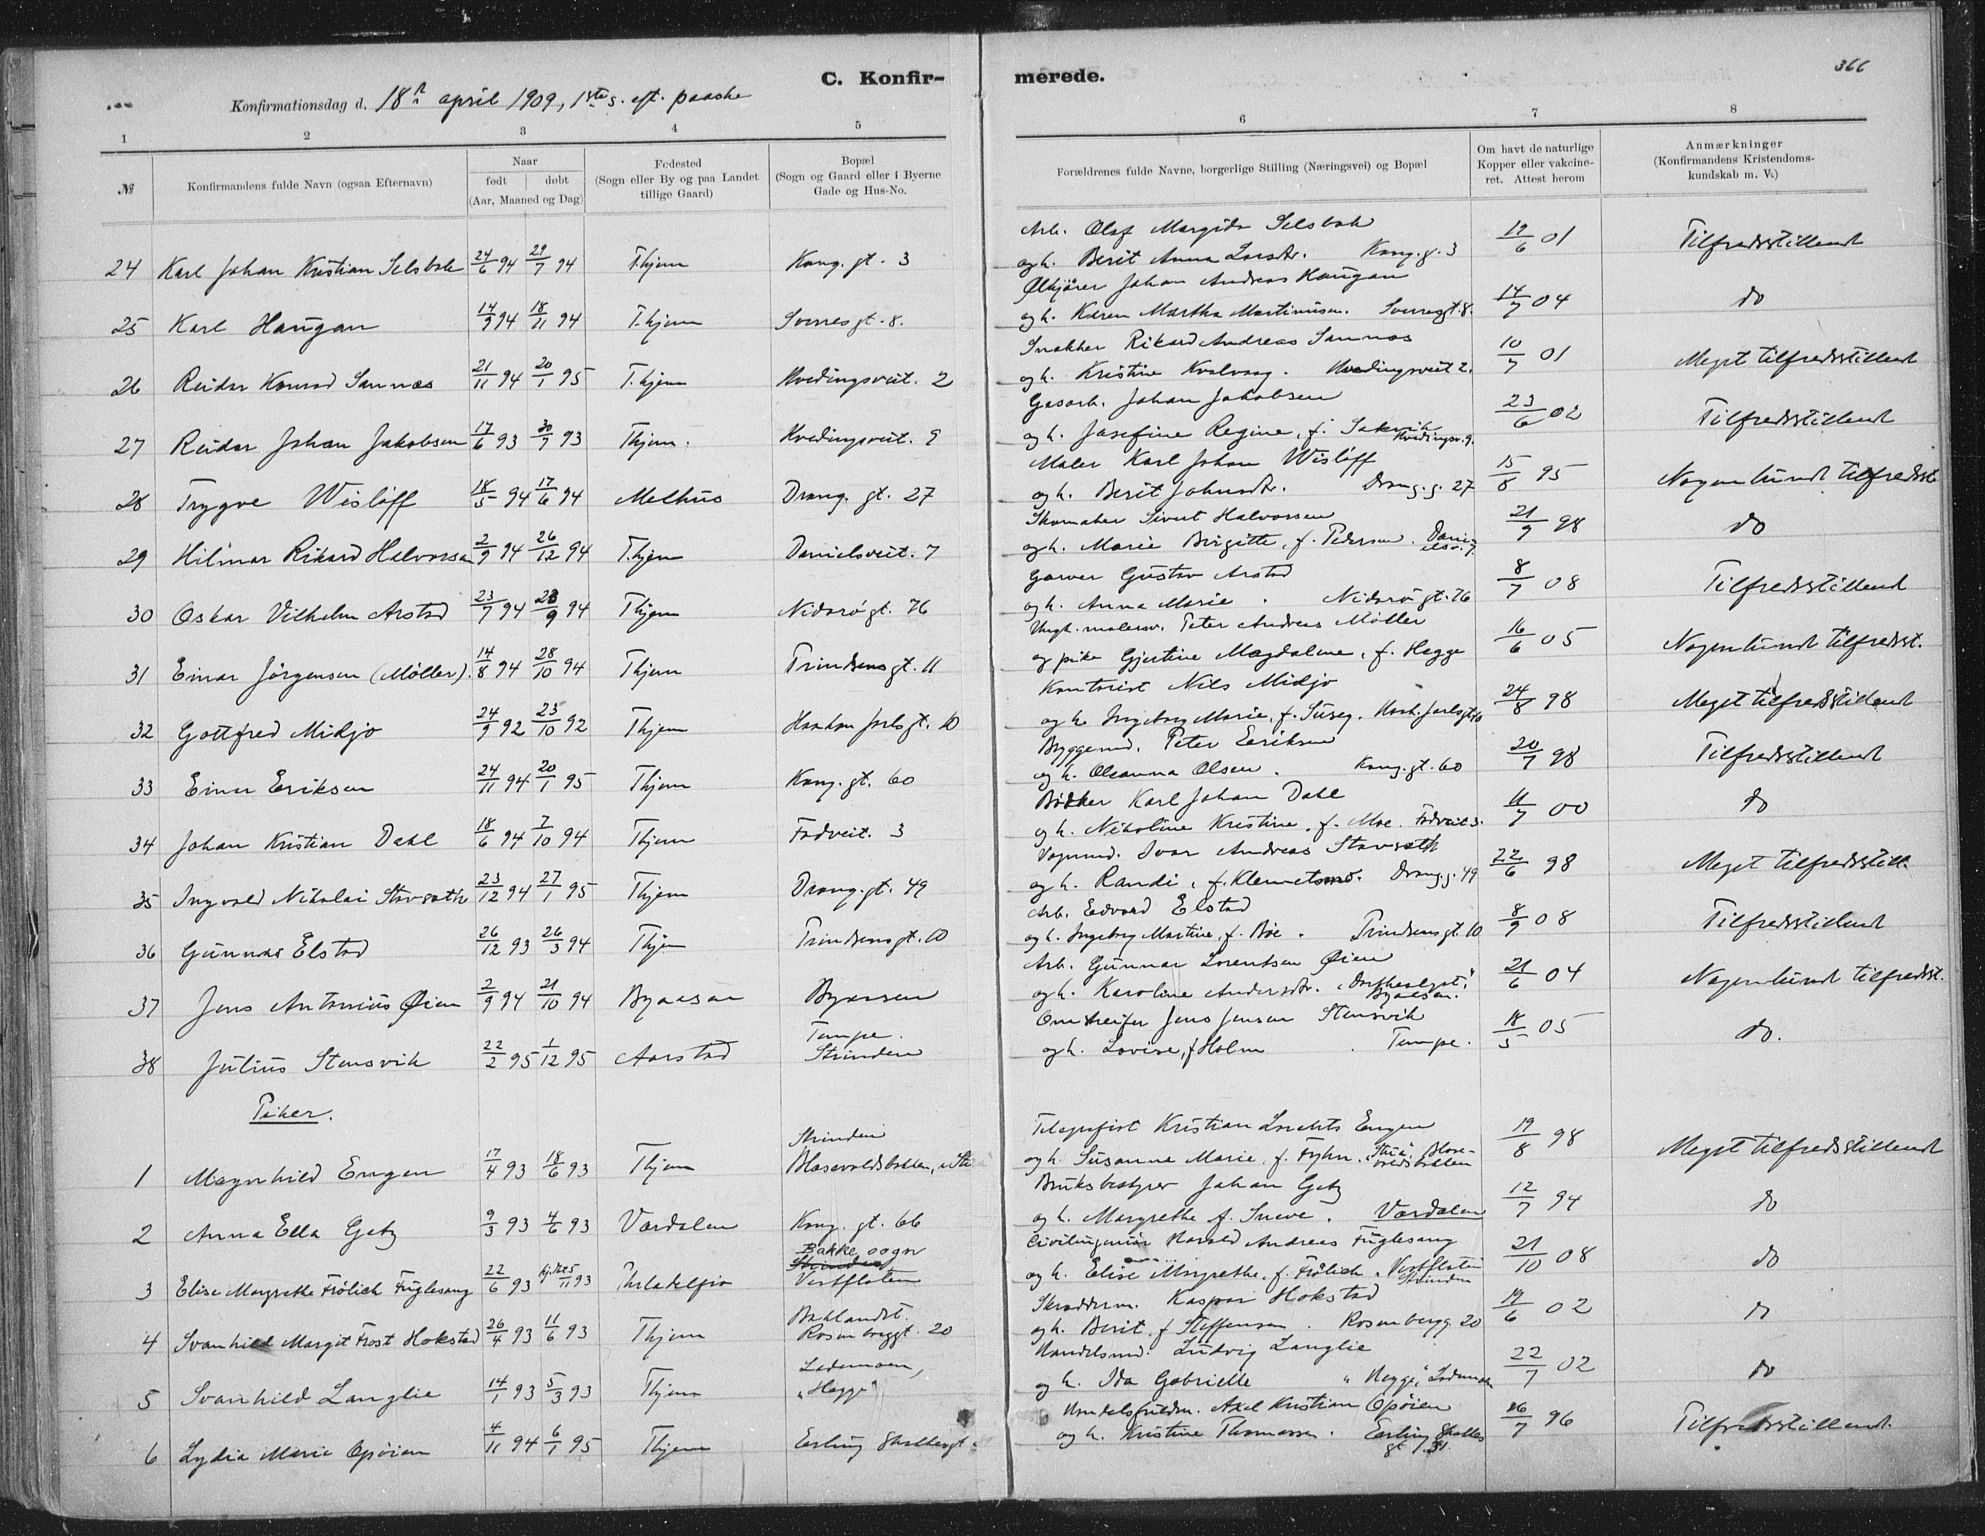 C. Konfir-
merede.
366
Konfirmationsdag d. 18de april 1909, 1ste s. eft. paaske
1 2 3 4 5 6 7 8
№
Konfirmandens fulde Navn (ogsaa Efternavn)
Naar
født døbt
(Aar, Maaned og Dag)
Fødested
(Sogn eller By og paa Landet
tillige Gaard)
Bopæl
(Sogn og Gaard eller i Byerne
Gade og Hus-No.
Forældrenes fulde Navne, borgerlige Stilling (Næringsvei) og Bopæl
Om havt de naturlige
Kopper eller vakcine-
ret. Attest herom
Anmærkninger
(Konfirmandens Kristendoms-
kundskab m. V.)
Arb. Olaf Margido Selsbak
24 Karl Johan Kristian Selsbak 24/6 94 29/7 94 T.hjem Kong. gt. 3 og h. Berit Anna Larsdr. Kong. g. 3 19/6 01 Tilfredsstillend
Ølkjører Johan Andreas Haugan
25 Karl Haugan 14/9 94 18/11 94 T.hjem Sverresgt. 8. og h. Karen Martha Martinusen. Sverresgt. 8. 14/7 04 do
Snekker Rikard Andreas Sannæs
26 Reidar Konrad Sannæs 21/11 94 20/1 95 T.hjem Hvedingsveit. 2 og h. Kristine Kvalvaag. Hvedingsveit 2. 10/7 01 Meget tilfredsstillend
Gasarb. Johan Jakobsen
27 Reidar Johan Jakobsen 17/6 93 30/7 93 Thjem. Hvedingsveit. 9 og h. Josefine Regine, f. Sakvik Hvedingsv. 9. 23/6 02 Tilfredsstillend
Maler Karl Johan Wisløff
28 Trygve Wisløff 18/5 94 17/6 94 Melhus Drong. gt. 27 og h. Berit Johnsdr. Drong. g. 27 15/8 95 Nogenlunde tilfredsst.
Skomaker Sivert Halvorsen
29 Hilmar Rikard Halvorsen 2/9 94 26/12 94 T.hjem Danielsveit. 7 og h. Marie Birgitte, f. Pedersen. Dani-elsv. 7. 21/9 98 do
Garver Gustav Arstad
30 Oskar Vilhelm Arstad 23/7 94 23/9 94 Thjem Nidarøgt. 76 og h. Anna Marie. Nidarøgt. 76 8/7 08 Tilfredsstillend
Ungk. malersv. Peter Andreas Møller
31 Einar Jørgensen (Møller). 14/8 94 28/10 94 Thjem Trindsensgt. 11 og pike Gjertine Magdalene, f. Hegge 16/6 05 Nogenlunde tilfredsst.
Kontorist Nils Midjo
32 Gottfred Midjo 24/9 92 23/10 92 Thjem Haakon jarlsgt. 10 og h. Ingeborg Marie, f. Suseg. Haak. jarlsgt. 10 24/8 98 Meget tilfredsstillend
Byggem. Peter Eriksen
33 Einar Eriksen 24/11 94 20/1 95 Thjem Kong. gt. 60 og h. Oleanna Olsen. Kong. gt. 60 20/7 98 Tilfredsstillend
Bødker Karl Johan Dahl
34 Johan Kristian Dahl 18/6 94 7/10 94 Thjem Fadveit. 3 og h. Nikoline Kristine, f. Moe. Fadveit 3. 11/7 00 do
Vognmd. Ivar Andreas Stavseth
35 Ingvald Nikolai Stavseth 23/12 94 27/1 95 Thjem Drong. gt. 49 og h. Randi, f. Klemetsmo. Drong. g. 49 22/6 98 Meget tilfredsstill.
Arb. Edvard Elstad
36 Gunnar Elstad 26/12 93 26/3 94 Thjem Trindsensgt. 10 og h. Ingeborg Martine, f. Bøe. Trindsensgt. 10 8/9 08 Tilfredsstillend
Arb. Gunnar Lorentsen Øien
37 Jens Antonius Øien 2/9 94 21/10 94 Byaasen Byaasen og h. Karoline Andersdr. "Dortheslyst", Byaasen. 21/6 04 Nogenlunde tilfredsst.
Omstreifer Jens Jensen Stensvik
38 Julius Stensvik 22/2 95 1/12 95 Aarstad Tempe. Strinden og h. Lovise, f. Holm. Tempe. 18/5 05 do.
Piker.
Telegrafist Kristian Lorents Engen
1 Magnhild Engen 17/4 93 18/6 93 Thjem Strinden Blasevoldsbakken og h. Susanne Marie, f. Fyhn. Blase-voldsbakken 19/8 98 Meget tilfredsstillend
Bruksbestyrer Johan Getz
2 Anna Ella Getz 9/3 93 4/6 93 Værdalen Kong. gt. 66 og h. Margrethe f. Sneve. Værdalen 12/7 94 do
Civilingeniør Harald Andreas Fuglesang
3 Elise Margrethe Frølich Fuglesang 22/6 93 5/11 93 Philadelfia Bakke sogn Strinden Vestfloten og h. Elise Margrethe, f. Frølich. Vestfloten Strinden 21/10 08 do
Skrædderm. Kaspar Hokstad
4 Svanhild Margit Frost Hokstad 26/4 93 11/6 93 Thjem Baklandet. Rosenborggt. 20 og h. Berit, f. Steffensen. Rosenborgg. 20 19/6 02 do
Handelsmd. Ludvig Langlie
5 Svanhild Langlie 14/1 93 5/3 93 Thjem Lademoen, "Hegge" og h. Ida Gabrielle "Hegge", Lademoen 22/7 02 do
Handelsfuldm. Axel Kristian Opøien
6 Lydia Marie Opøien 4/11 94 6/1 95 Thjem Erling Skakkesgt. og h. Kristine Thomassen. Erling Skakkes gt. 31. 26/7 96 Tilfredsstillend.